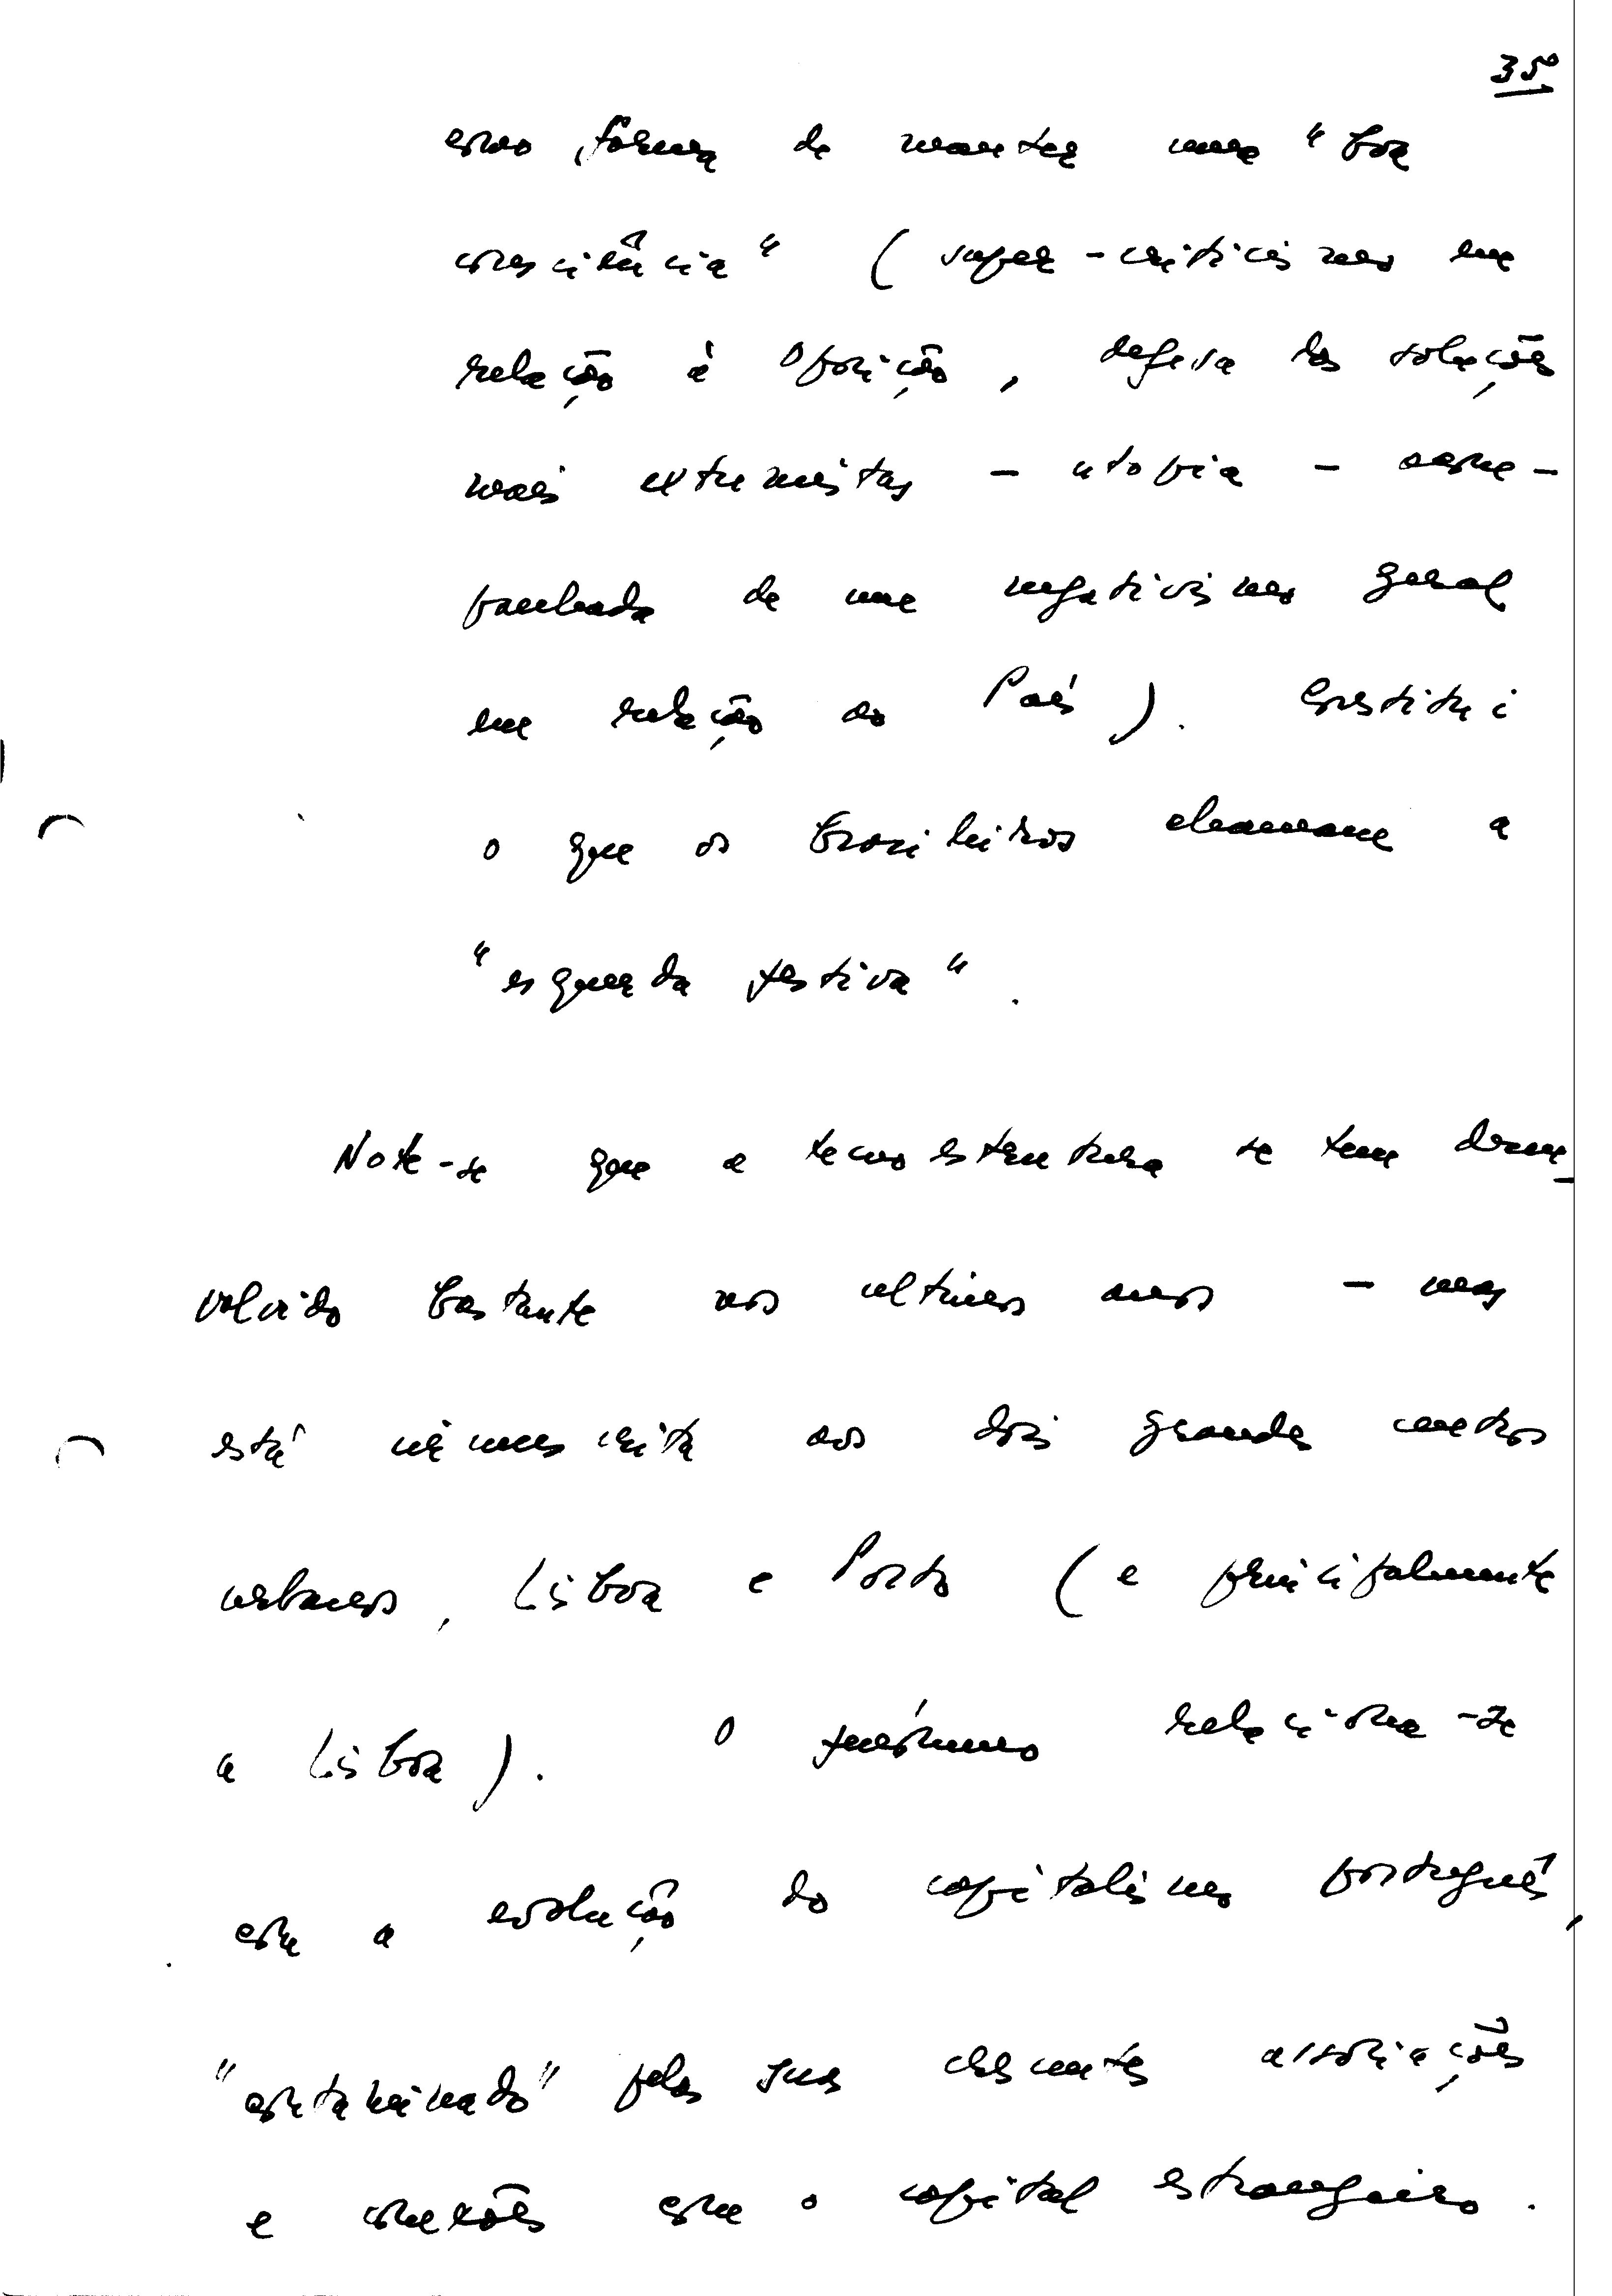 35º
como forma de manter uma "boa
consciência" (super-criticismo em
relação à Oposição, defesa das soluções
mais extremistas - utopia - acom-
panhada de um negativismo geral
em relação ao País). Constitui
o que os brasileiros chamam a
"esquerda festiva".
Note-se que a tecnoestrutura se tem desen-
volvido bastante nos ultimos anos - mas
está circunscrita aos dois grandes centros
urbanos, Lisboa e Porto (e principalmente
a Lisboa). O fenómeno relaciona-se
com a evolução do capitalismo português,
"contaminado" pelas suas crescentes associações
e conexões com o capital estrangeiro.